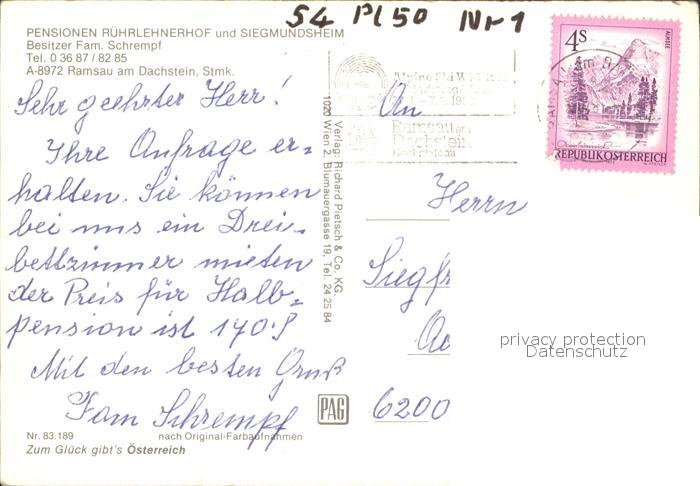 54 Pl 50 Nr 1
PENSIONEN RÜHRLEHNERHOF und SIEGMUNDSHEIM
Besitzer Fam. Schrempf
Tel. 0 36 87 / 82 85
A-8972 Ramsau am Dachstein, Stmk.
Sehr geehrter Herr!
Ihre Anfrage er=
halten. Sie können
bei uns ein Drei-
bettzimmer mieten
der Preis für Halb=
pension ist 140.S
Mit den besten Gruß
Fam Schrempf
Nr. 83.189 nach Original-Farbaufnahmen
Zum Glück gibt's Österreich
Verlag: Richard Pietsch & Co. KG,
1020 Wien 2, Blumauergasse 19, Tel. 24 25 84
PAG
Ramsau am
Dachstein
4S
ALMSEE
REPUBLIK ÖSTERREICH
An
Herrn
Siegfr
6200
privacy protection
Datenschutz